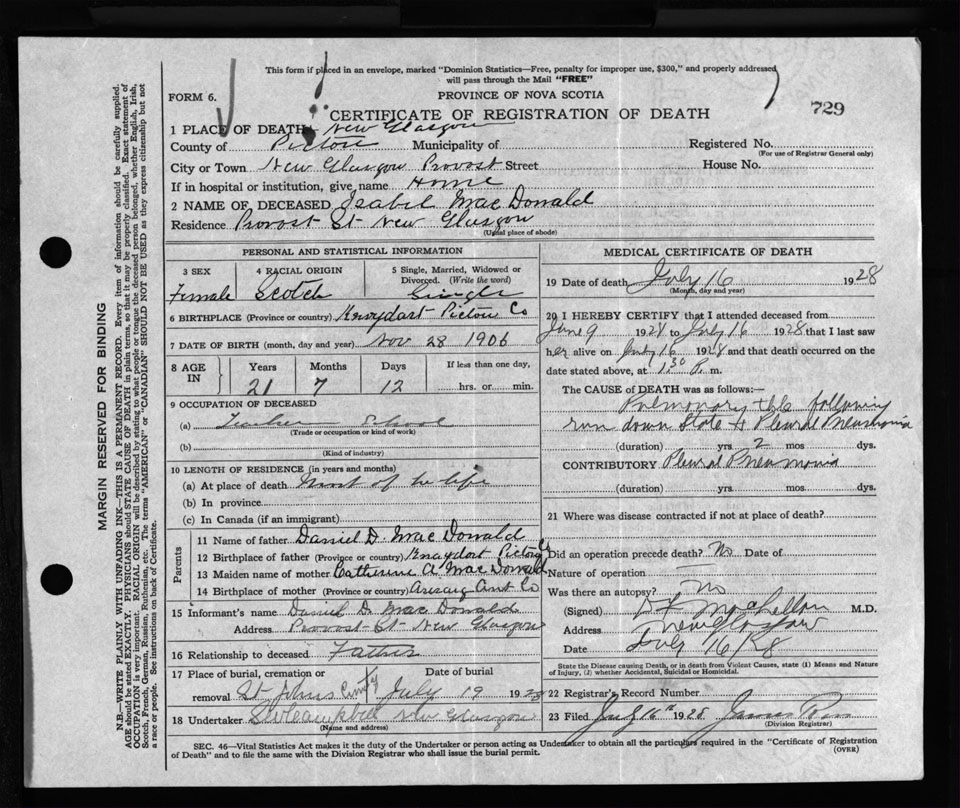 This form if placed in an envelope, marked "Dominion Statistics—Free, penalty for improper use, $300," and properly addressed
will pass through the Mail "FREE"
FORM 6.
PROVINCE OF NOVA SCOTIA
CERTIFICATE OF REGISTRATION OF DEATH
729
1 PLACE OF DEATH New Glasgow
County of Pictou Municipality of Registered No.
(For use of Registrar General only)
City or Town New Glasgow Provost Street House No.
If in hospital or institution, give name Home
2 NAME OF DECEASED Isabel MacDonald
Residence Provost St New Glasgow
(Usual place of abode)
PERSONAL AND STATISTICAL INFORMATION
3 SEX 4 RACIAL ORIGIN 5 Single, Married, Widowed or
Divorced. (Write the word)
Female Scotch Single
6 BIRTHPLACE (Province or country) Knoydart Pictou Co
7 DATE OF BIRTH (month, day and year) Nov 28 1906
8 AGE IN Years Months Days If less than one day,
21 7 12 hrs. or min.
9 OCCUPATION OF DECEASED
(a) Teacher School
(Trade or occupation or kind of work)
(b)
(Kind of industry)
10 LENGTH OF RESIDENCE (in years and months)
(a) At place of death Most of her life
(b) In province
(c) In Canada (if an immigrant)
Parents
11 Name of father Daniel D. MacDonald
12 Birthplace of father (Province or country) Knoydart Pictou Co
13 Maiden name of mother Catherine A MacDonald
14 Birthplace of mother (Province or country) Arisaig Ant Co
15 Informant's name Daniel D. MacDonald
Address Provost St New Glasgow
16 Relationship to deceased Father
17 Place of burial, cremation or Date of burial
removal St Johns July 19 1928
18 Undertaker New Glasgow
(Name and address)
MEDICAL CERTIFICATE OF DEATH
19 Date of death July 16 1928
(Month, day and year)
20 I HEREBY CERTIFY that I attended deceased from
June 9 1928 to July 16 1928 that I last saw
her alive on July 16 1928 and that death occurred on the
date stated above, at 1 30 P. m.
The CAUSE of DEATH was as follows:—
Pulmonary following
run down State & Pleural Pneumonia
(duration) yrs 2 mos dys.
CONTRIBUTORY Pleural Pneumonia
(duration) yrs. mos. dys.
21 Where was disease contracted if not at place of death?
Did an operation precede death? No Date of
Nature of operation
Was there an autopsy? No
(Signed) M.D.
Address New Glasgow
Date July 16/28
State the Disease causing Death, or in death from Violent Causes, state (1) Means and Nature
of Injury, (2) whether Accidental, Suicidal or Homicidal.
22 Registrar's Record Number
23 Filed July 16th 1928 James
(Division Registrar)
SEC. 46—Vital Statistics Act makes it the duty of the Undertaker or person acting as Undertaker to obtain all the particulars required in the "Certificate of Registration
of Death" and to file the same with the Division Registrar who shall issue the burial permit.
(OVER)
MARGIN RESERVED FOR BINDING
N.B.—WRITE PLAINLY WITH UNFADING INK—THIS IS A PERMANENT RECORD. Every item of information should be carefully supplied.
AGE should be stated EXACTLY. PHYSICIANS should STATE CAUSE OF DEATH in plain terms, so that it may be properly classified. Exact statement of
OCCUPATION is very important. RACIAL ORIGIN will be described by stating to what people or tongue the deceased person belonged, whether English, Irish,
Scotch, French, German, Russian, Ruthenian, etc. The terms "AMERICAN" or "CANADIAN" SHOULD NOT BE USED as they express citizenship but not
a race or people. See instructions on back of Certificate.